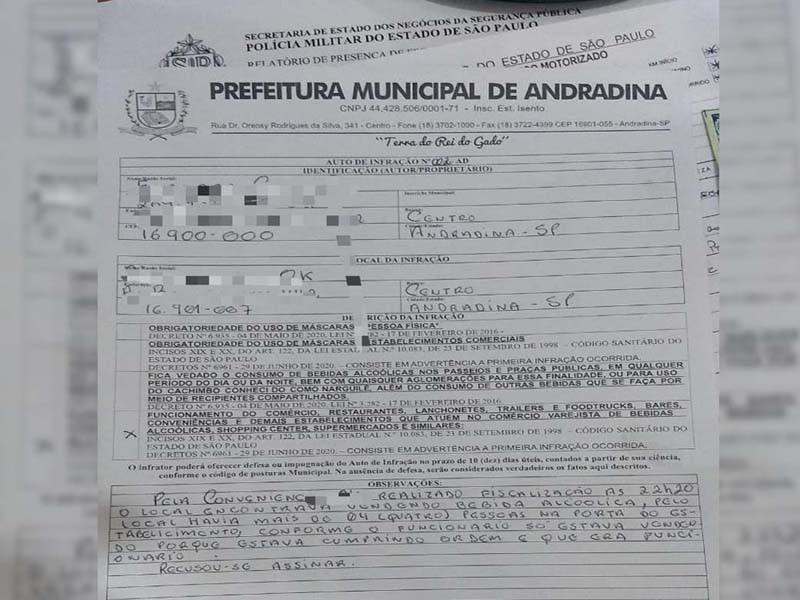 SECRETARIA DE ESTADO DOS NEGÓCIOS DA SEGURANÇA PÚBLICA
POLÍCIA MILITAR DO ESTADO DE SÃO PAULO
RELATÓRIO DE PRESENÇA DE
DO ESTADO DE SÃO PAULO
MOTORIZADO
KM INÍCIO
PREFEITURA MUNICIPAL DE ANDRADINA
CNPJ 44.428.506/0001-71 - Insc. Est. Isento
Rua Dr. Orensy Rodrigues da Silva, 341 - Centro - Fone (18) 3702-1000 - Fax (18) 3722-4399 CEP 16901-055 - Andradina-SP
"Terra do Rei do Gado"
AUTO DE INFRAÇÃO Nº 002 AD
IDENTIFICAÇÃO (AUTOR/PROPRIETÁRIO)
Nome/Razão Social:
Inscrição Municipal:
Bairro:
CENTRO
CEP:
16900-000
Cidade/Estado:
ANDRADINA - SP
LOCAL DA INFRAÇÃO
CENTRO
16.901-007
Cidade/Estado:
ANDRADINA - SP
DESCRIÇÃO DA INFRAÇÃO
OBRIGATORIEDADE DO USO DE MÁSCARAS PESSOA FÍSICA
DECRETO Nº 6.935 - 04 DE MAIO DE 2020, LEI Nº 3.282 - 17 DE FEVEREIRO DE 2016 -
OBRIGATORIEDADE DO USO DE MÁSCARAS ESTABELECIMENTOS COMERCIAIS
INCISOS XIX E XX, DO ART. 122, DA LEI ESTADUAL N.º 10.083, DE 23 DE SETEMBRO DE 1998 - CÓDIGO SANITÁRIO DO
ESTADO DE SÃO PAULO
DECRETOS Nº 6961 - 29 DE JUNHO DE 2020. - CONSISTE EM ADVERTÊNCIA A PRIMEIRA INFRAÇÃO OCORRIDA.
FICA VEDADO O CONSUMO DE BEBIDAS ALCOÓLICAS NOS PASSEIOS E PRAÇAS PÚBLICAS, EM QUALQUER
PERÍODO DO DIA OU DA NOITE, BEM COM QUAISQUER AGLOMERAÇÕES PARA ESSA FINALIDADE, OU PARA USO
DO CACHIMBO CONHECIDO COMO NARGUILÉ, ALÉM DO CONSUMO DE OUTRAS BEBIDAS QUE SE FAÇA POR
MEIO DE RECIPIENTES COMPARTILHADOS.
DECRETO Nº 6.935 - 04 DE MAIO DE 2020, LEI Nº 3.282 - 17 DE FEVEREIRO DE 2016
FUNCIONAMENTO DO COMÉRCIO, RESTAURANTES, LANCHONETES, TRAILERS E FOODTRUCKS, BARES,
CONVENIÊNCIAS E DEMAIS ESTABELECIMENTOS QUE ATUEM NO COMÉRCIO VAREJISTA DE BEBIDAS
ALCOÓLICAS, SHOPPING CENTER, SUPERMERCADOS E SIMILARES:
X INCISOS XIX E XX, DO ART. 122, DA LEI ESTADUAL N.º 10.083, DE 23 DE SETEMBRO DE 1998 - CÓDIGO SANITÁRIO DO
ESTADO DE SÃO PAULO
DECRETOS Nº 6961 - 29 DE JUNHO DE 2020. - CONSISTE EM ADVERTÊNCIA A PRIMEIRA INFRAÇÃO OCORRIDA.
O infrator poderá oferecer defesa ou impugnação do Auto de Infração no prazo de 10 (dez) dias úteis, contados a partir de sua ciência,
conforme o código de posturas Municipal. Na ausência de defesa, serão considerados verdadeiros os fatos aqui descritos.
OBSERVAÇÕES:
PELA CONVENIENC REALIZADO FISCALIZAÇÃO AS 22H20
O LOCAL ENCONTRAVA VENDENDO BEBIDA ALCOÓLICA, PELO
LOCAL HAVIA MAIS DE 04 (QUATRO) PESSOAS NA PORTA DO ES-
TABELECIMENTO, CONFORME O FUNCIONARIO SÓ ESTAVA VENDEN-
DO PORQUE ESTAVA CUMPRINDO ORDEM E QUE ERA FUNCI-
ONARIO.
RECUSOU-SE ASSINAR.